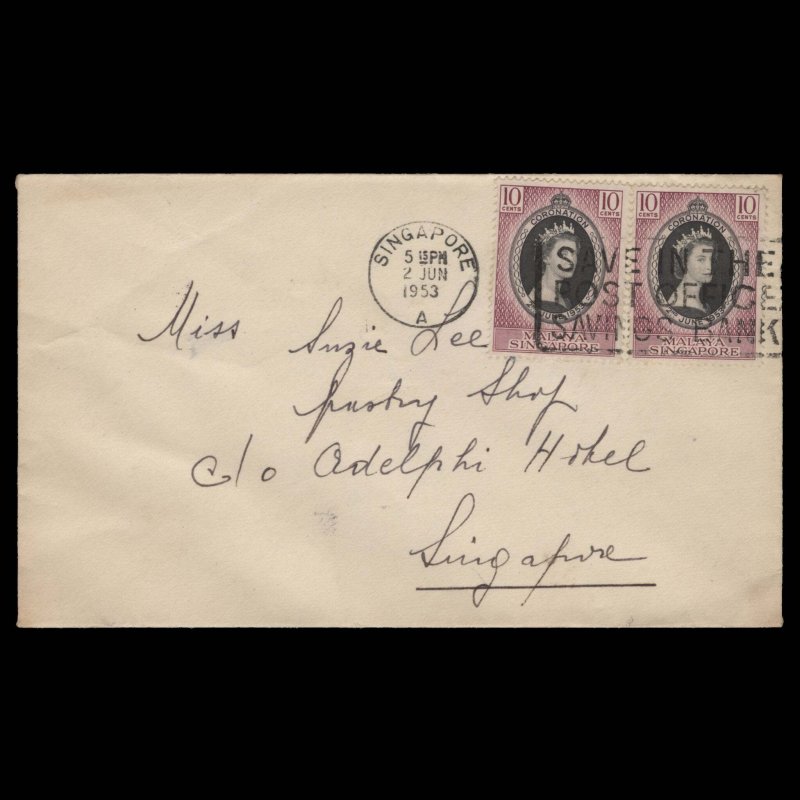 10 CENTS 10 CENTS
CORONATION
2ND JUNE 1953
MALAYA
SINGAPORE
10 CENTS 10 CENTS
CORONATION
2ND JUNE 1953
MALAYA
SINGAPORE
SINGAPORE
5 15PM
2 JUN
1953
A
SAVE IN THE
POST OFFICE
SAVINGS BANK
Miss Suzie Lee
pastry Shop
c/o Adelphi Hotel
Singapore